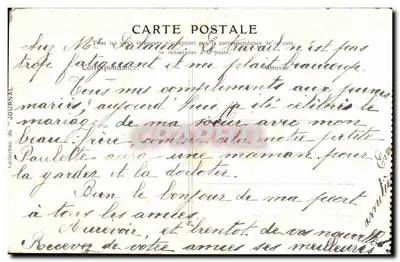 CARTE POSTALE
Tous les pays étrangers n'acceptant pas la correspondance de ce côté
se renseigner à la poste.
Correspondance
chez Mr. Le travail n'est pas
trop fatiguant et me plait beaucoup.
Tous mes compliments aux jeunes
mariés, aujourd'hui a été célébrés le
mariage de ma soeur avec mon
beau frère, notre petite
Paulette aura une maman pour
la garder et la
Bien le bonjour de ma part
à tous les amies.
Aurevoir, et bientôt de vos nouvelles
Recevez de votre amies ses meilleures
Collection du "JOURNAL"